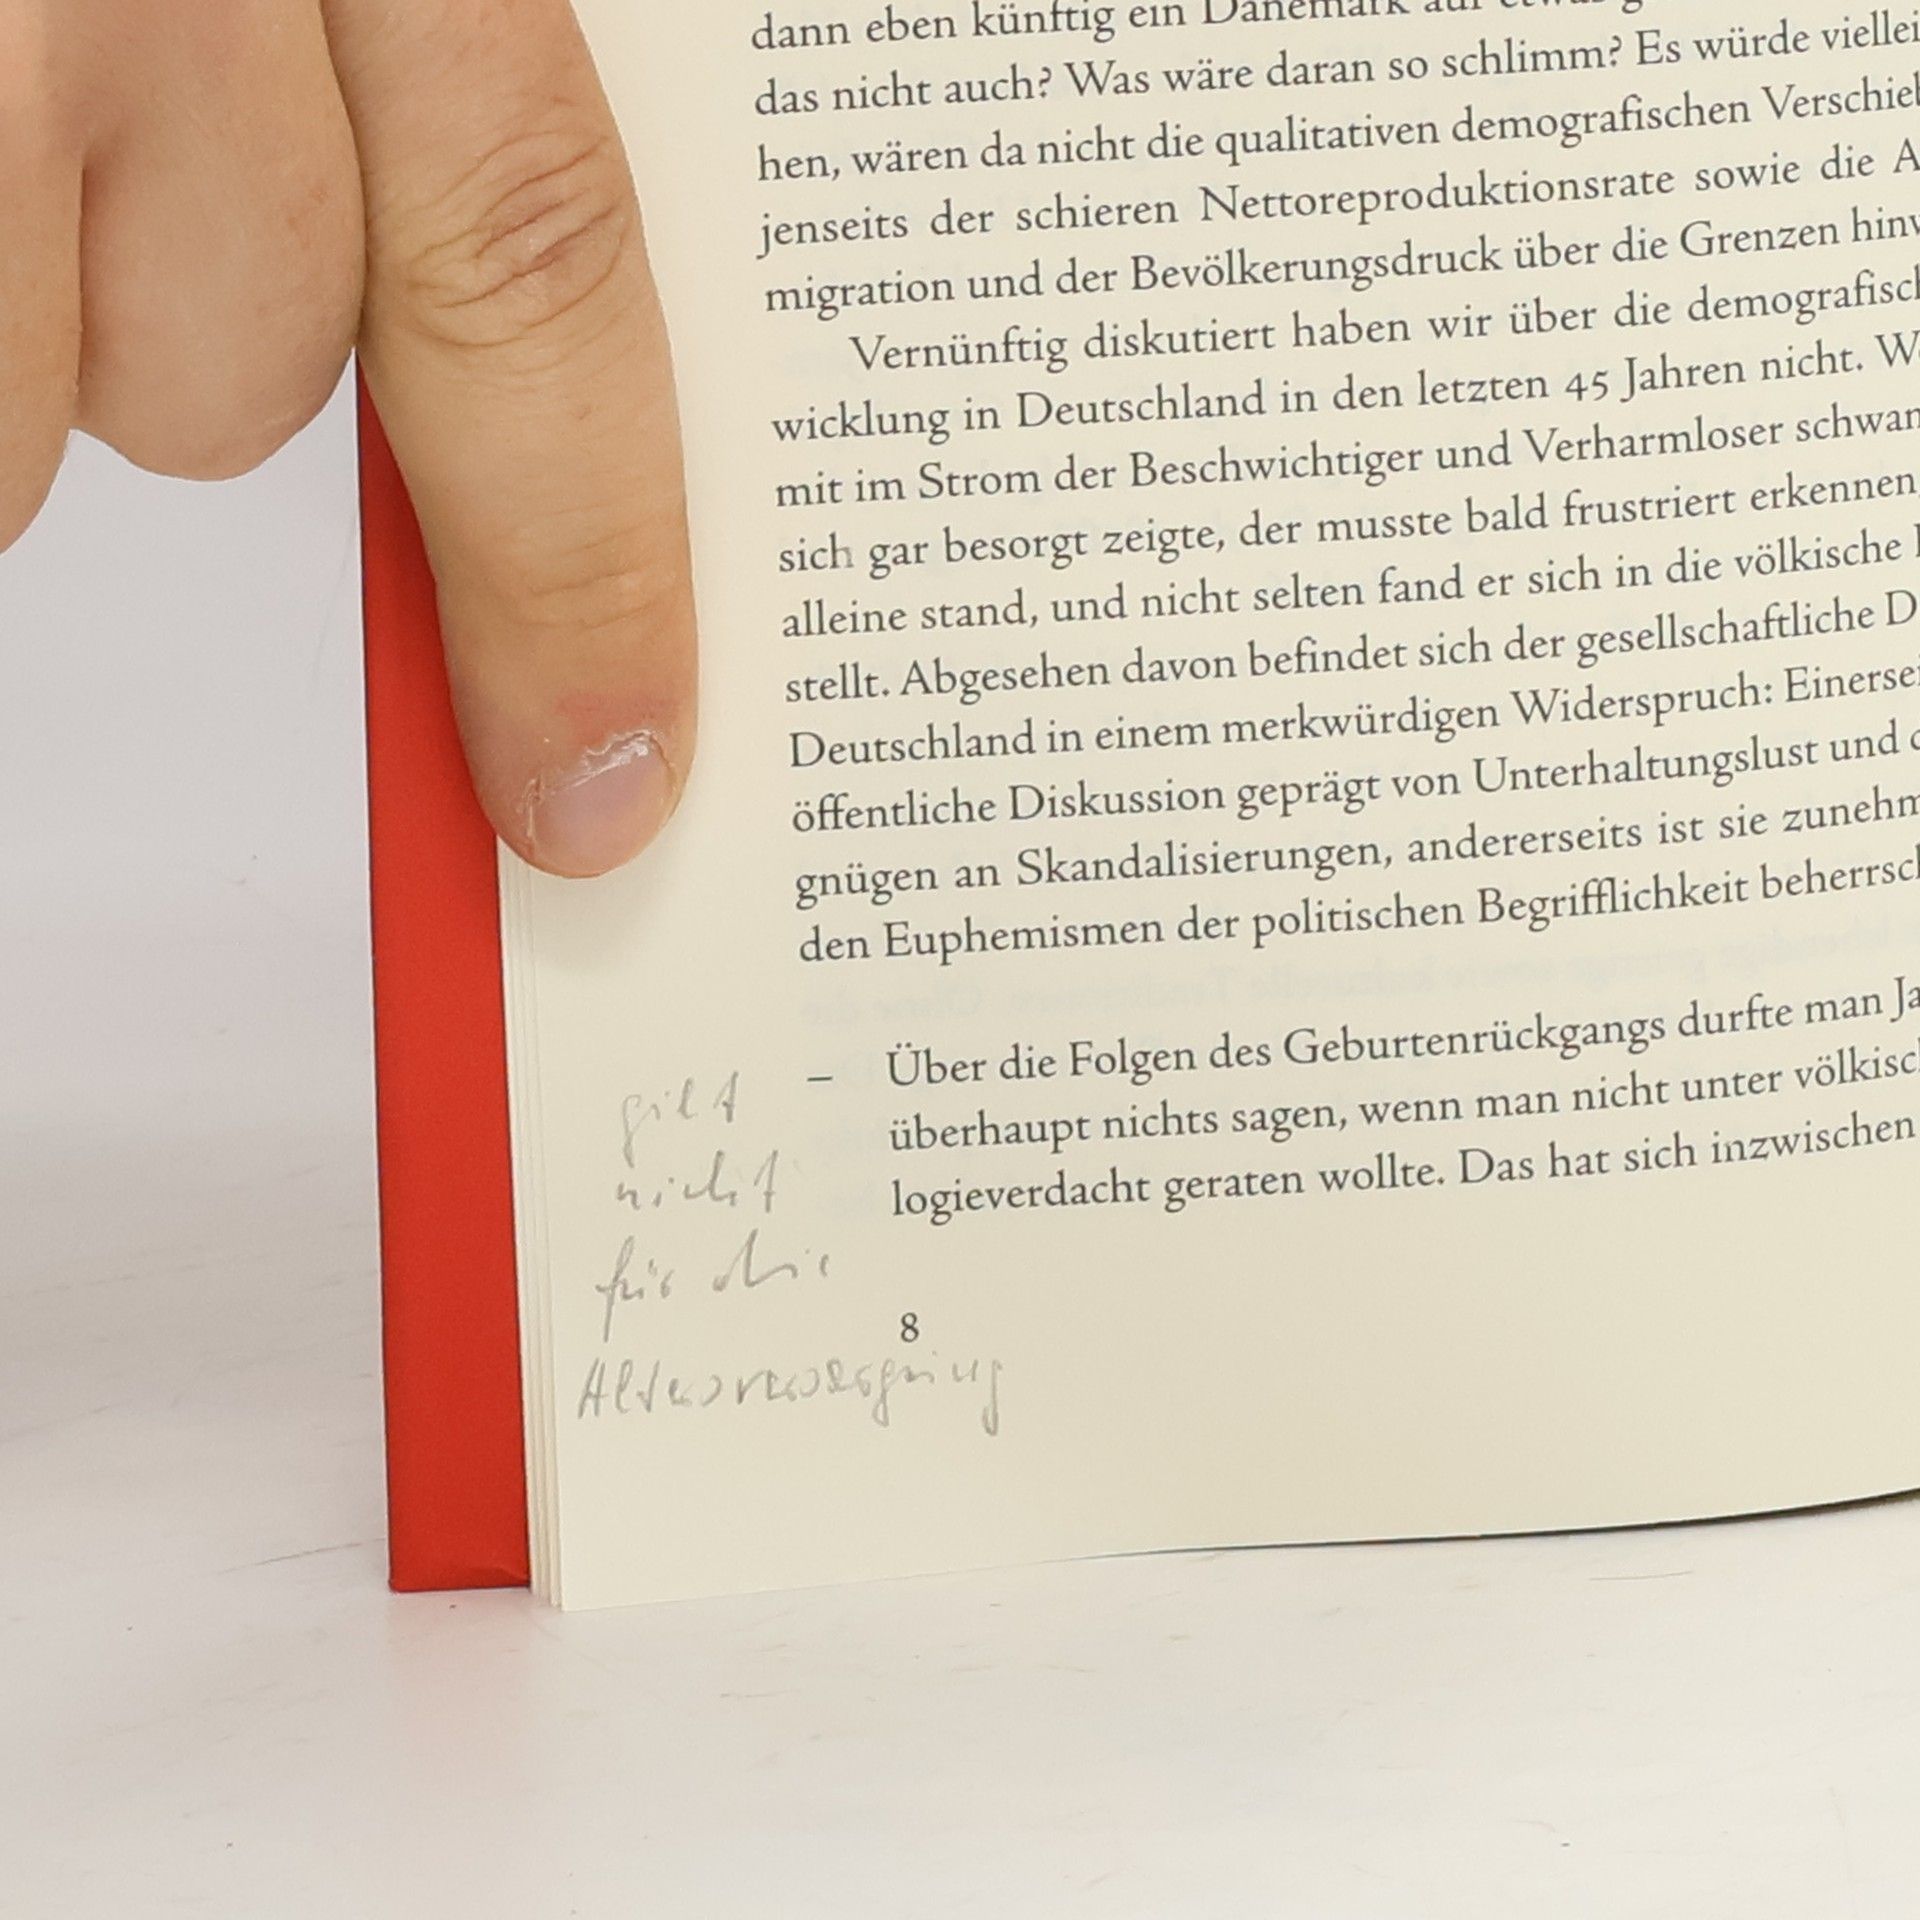 dann eben künftig ein Dänemark auf etwas
das nicht auch? Was wäre daran so schlimm? Es würde viellei
hen, wären da nicht die qualitativen demografischen Verschieb
jenseits der schieren Nettoreproduktionsrate sowie die A
migration und der Bevölkerungsdruck über die Grenzen hinw
Vernünftig diskutiert haben wir über die demografisch
wicklung in Deutschland in den letzten 45 Jahren nicht. W
mit im Strom der Beschwichtiger und Verharmloser schwam
sich gar besorgt zeigte, der musste bald frustriert erkennen,
alleine stand, und nicht selten fand er sich in die völkische
stellt. Abgesehen davon befindet sich der gesellschaftliche D
Deutschland in einem merkwürdigen Widerspruch: Einersei
öffentliche Diskussion geprägt von Unterhaltungslust und d
gnügen an Skandalisierungen, andererseits ist sie zunehm
den Euphemismen der politischen Begrifflichkeit beherrsch
– Über die Folgen des Geburtenrückgangs durfte man Ja
überhaupt nichts sagen, wenn man nicht unter völkisch
logieverdacht geraten wollte. Das hat sich inzwischen
gilt
nicht
für die
8
Altersversorgung